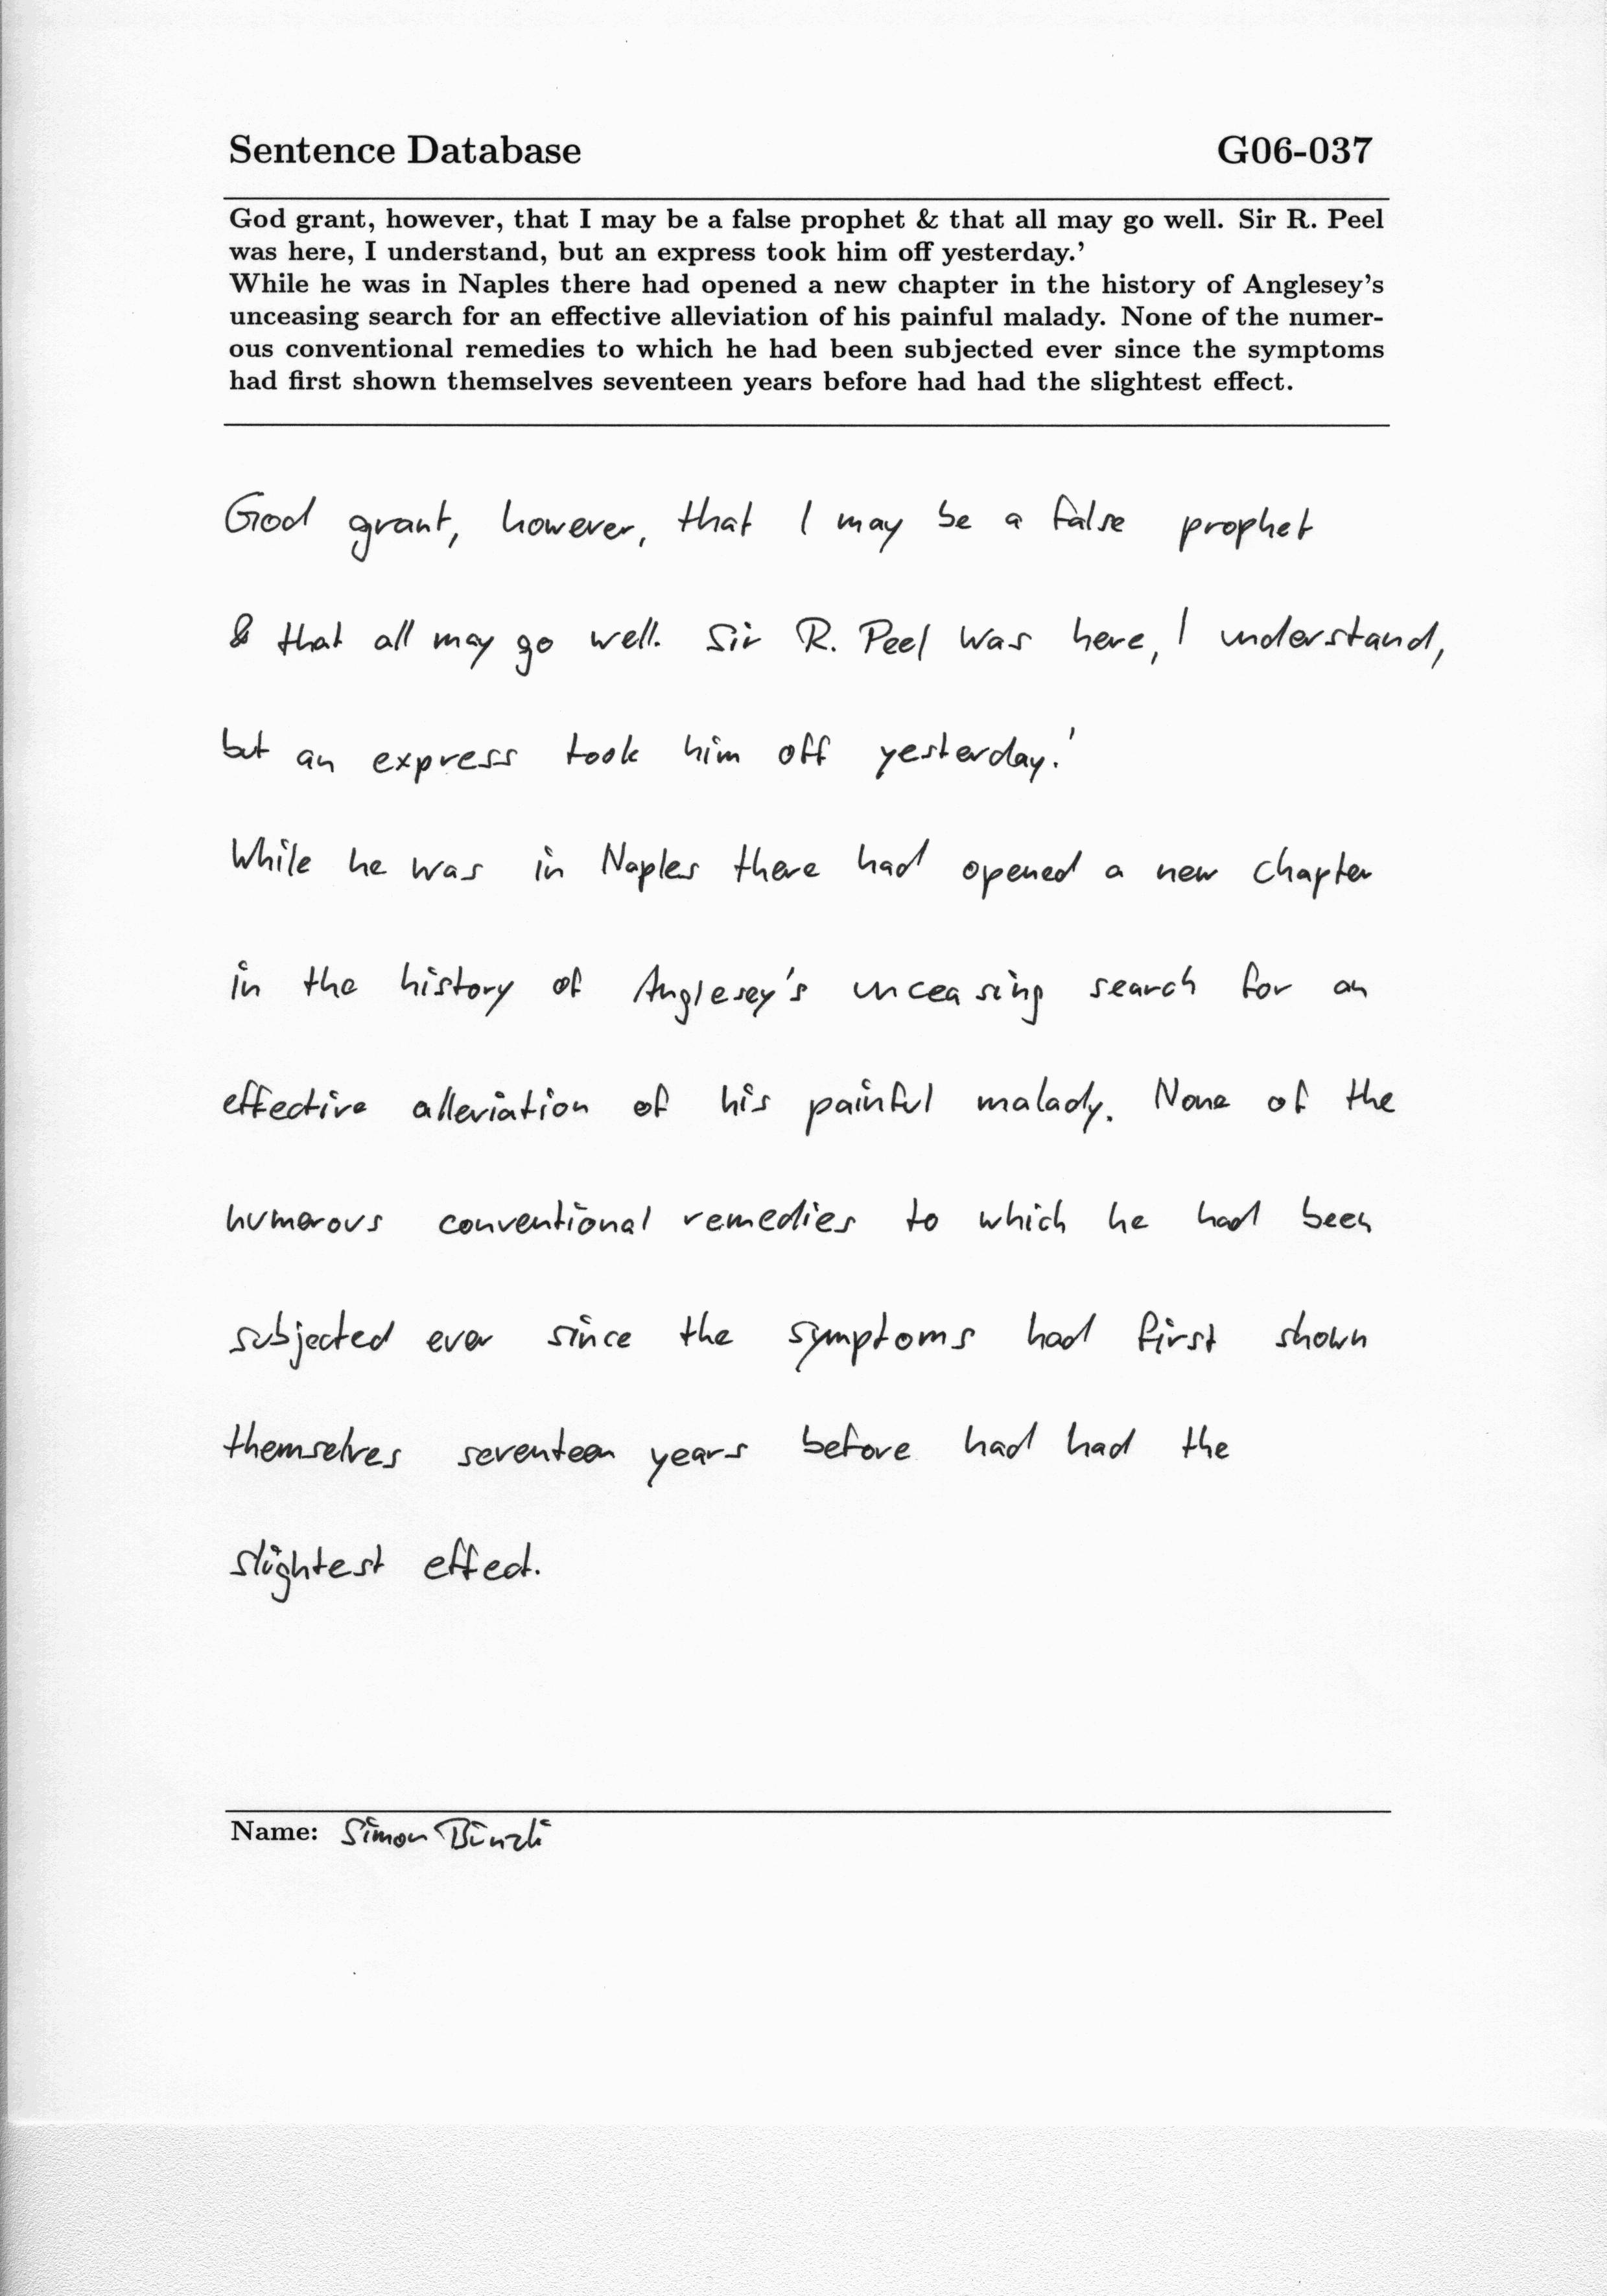 Sentence Database G06-037
God grant, however, that I may be a false prophet & that all may go well. Sir R. Peel
was here, I understand, but an express took him off yesterday.'
While he was in Naples there had opened a new chapter in the history of Anglesey's
unceasing search for an effective alleviation of his painful malady. None of the numer-
ous conventional remedies to which he had been subjected ever since the symptoms
had first shown themselves seventeen years before had had the slightest effect.
God grant, however, that I may be a false prophet
& that all may go well. Sir R. Peel was here, I understand,
but an express took him off yesterday.'
While he was in Naples there had opened a new chapter
in the history of Anglesey's unceasing search for an
effective alleviation of his painful malady. None of the
numerous conventional remedies to which he had been
subjected ever since the symptoms had first shown
themselves seventeen years before had had the
slightest effect.
Name: Simon Bünzli